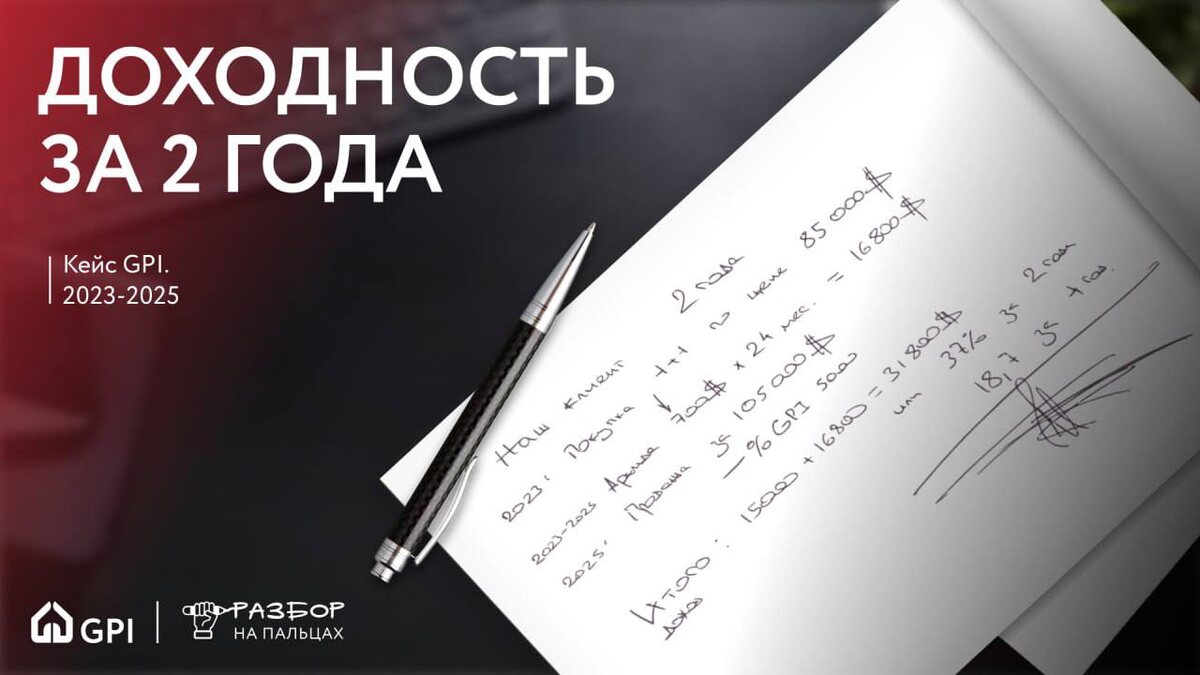 ДОХОДНОСТЬ
ЗА 2 ГОДА
Кейс GPI.
2023-2025
GPI
РАЗБОР
НА ПАЛЬЦАХ
Наш клиент 2 года
2023: Покупка 1+1 по цене 85 000$
2023-2025 Аренда 700$ × 24 мес. = 16 800$
2025: Продажа за 105 000$
– % GPI 5000
Итого: 15000 + 16800 = 31 800$
доход
или 37% за 2 года
18,7 за год.